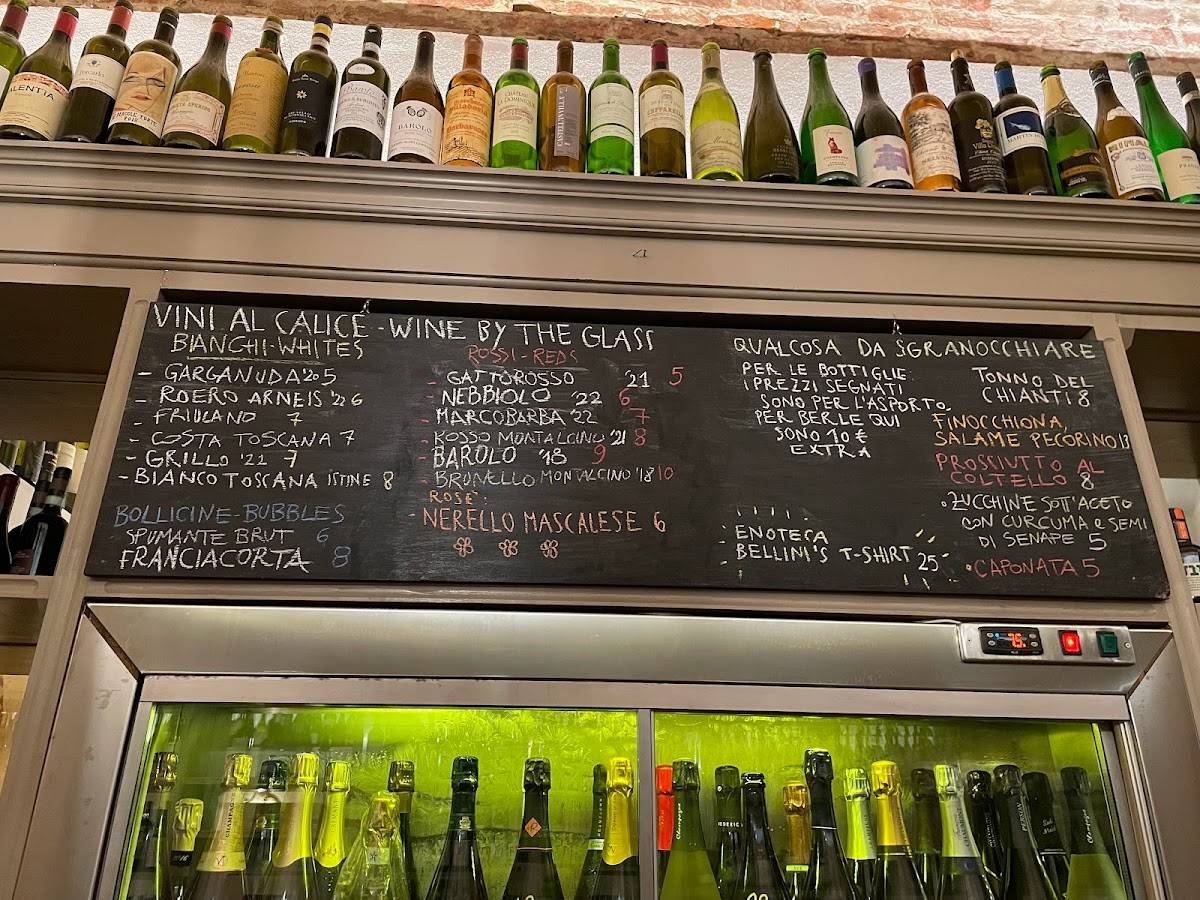 VINI AL CALICE - WINE BY THE GLASS
BIANCHI-WHITES
- GARGANUDA '20 5
- ROERO ARNEIS '22 6
- FRIULANO 7
- COSTA TOSCANA 7
- GRILLO '21 7
- BIANCO TOSCANA ISTINE 8
BOLLICINE-BUBBLES
SPUMANTE BRUT 6
FRANCIACORTA 8
ROSSI-REDS
- GATTOROSSO '21 5
- NEBBIOLO '22 6
- MARCOBARBA '22 7
- ROSSO MONTALCINO '21 8
- BAROLO '18 9
- BRUNELLO MONTALCINO '18 10
ROSÉ:
- NERELLO MASCALESE 6
QUALCOSA DA SGRANOCCHIARE
PER LE BOTTIGLIE:
I PREZZI SEGNATI
SONO PER L'ASPORTO.
PER BERLE QUI
SONO 10 €
EXTRA
- ENOTECA
BELLINI'S T-SHIRT 25
TONNO DEL
CHIANTI 8
FINOCCHIONA,
SALAME PECORINO 13
PROSCIUTTO AL
COLTELLO 8
• ZUCCHINE SOTT'ACETO
CON CURCUMA e SEMI
DI SENAPE 5
• CAPONATA 5
BAROLO